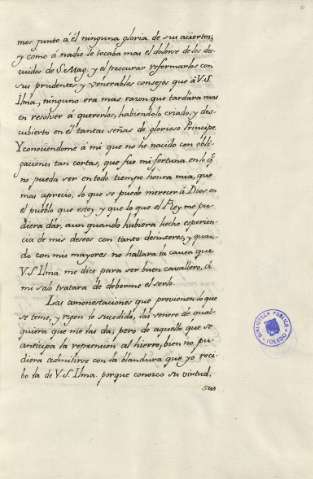 mas junto à él ninguna gloria de sus aciertos,
y como à nadie le tocaba mas el dolerse de los des-
cuidos de S. Mag. y el procurar reformarlos con
sus prudentes y venerables consejos que à V.S.
Ilma, ninguno era mas razon que tardára mas
en resolver à quererlos, habiendolo criado, y des-
cubierto en él tantas señas de glorioso Principe.
Y conociendome à mi que no he nacido con obli-
gaciones tan cortas, que fue mi fortuna, en lo qͤ
no pueda ser en todo tiempo honra mia, que
mas aprecio, lo que se puede merecer à Dios en
el pueblo que estoy, y que lo que el Rey me pu-
diera dár, aun quando hubiera hecho experien-
cia de mis deseos con tanto desinteres, y quan-
do con mis mayores no hallara la causa que
V.S. Ilma me dice para ser buen cavallero, à
mi solo tratara de deberme el serlo.
Las amonestaciones que provienen de lo que
se teme, y rigen lo sucedido, las veneré de qual-
quiera que me las dá; pero de aquello que se
anticipa la reprension al hierro, bien no pu-
diera admitirlos con la blandura que yo reci-
bo la de V.S. Ilma. porque conozco su virtud,
sus
BIBLIOTECA PUBLICA
TOLEDO